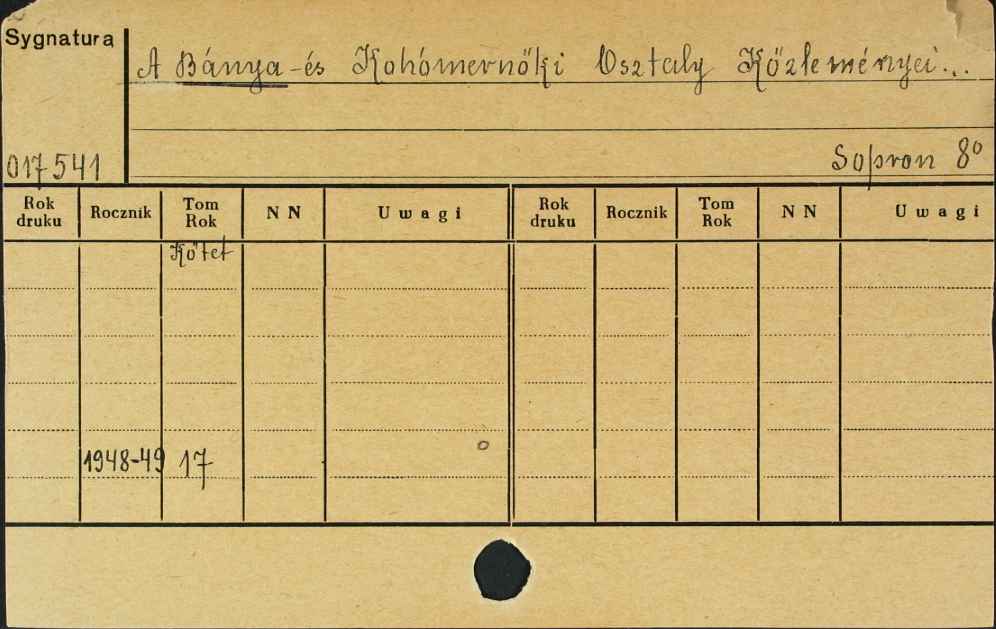 Sygnatura
A Bánya-és Kohómernőki Osztaly Közleményei...
017541
Sopron 8°
Rok druku Rocznik Tom Rok N N Uwagi Rok druku Rocznik Tom Rok N N Uwagi
Kötet
1948-49 17